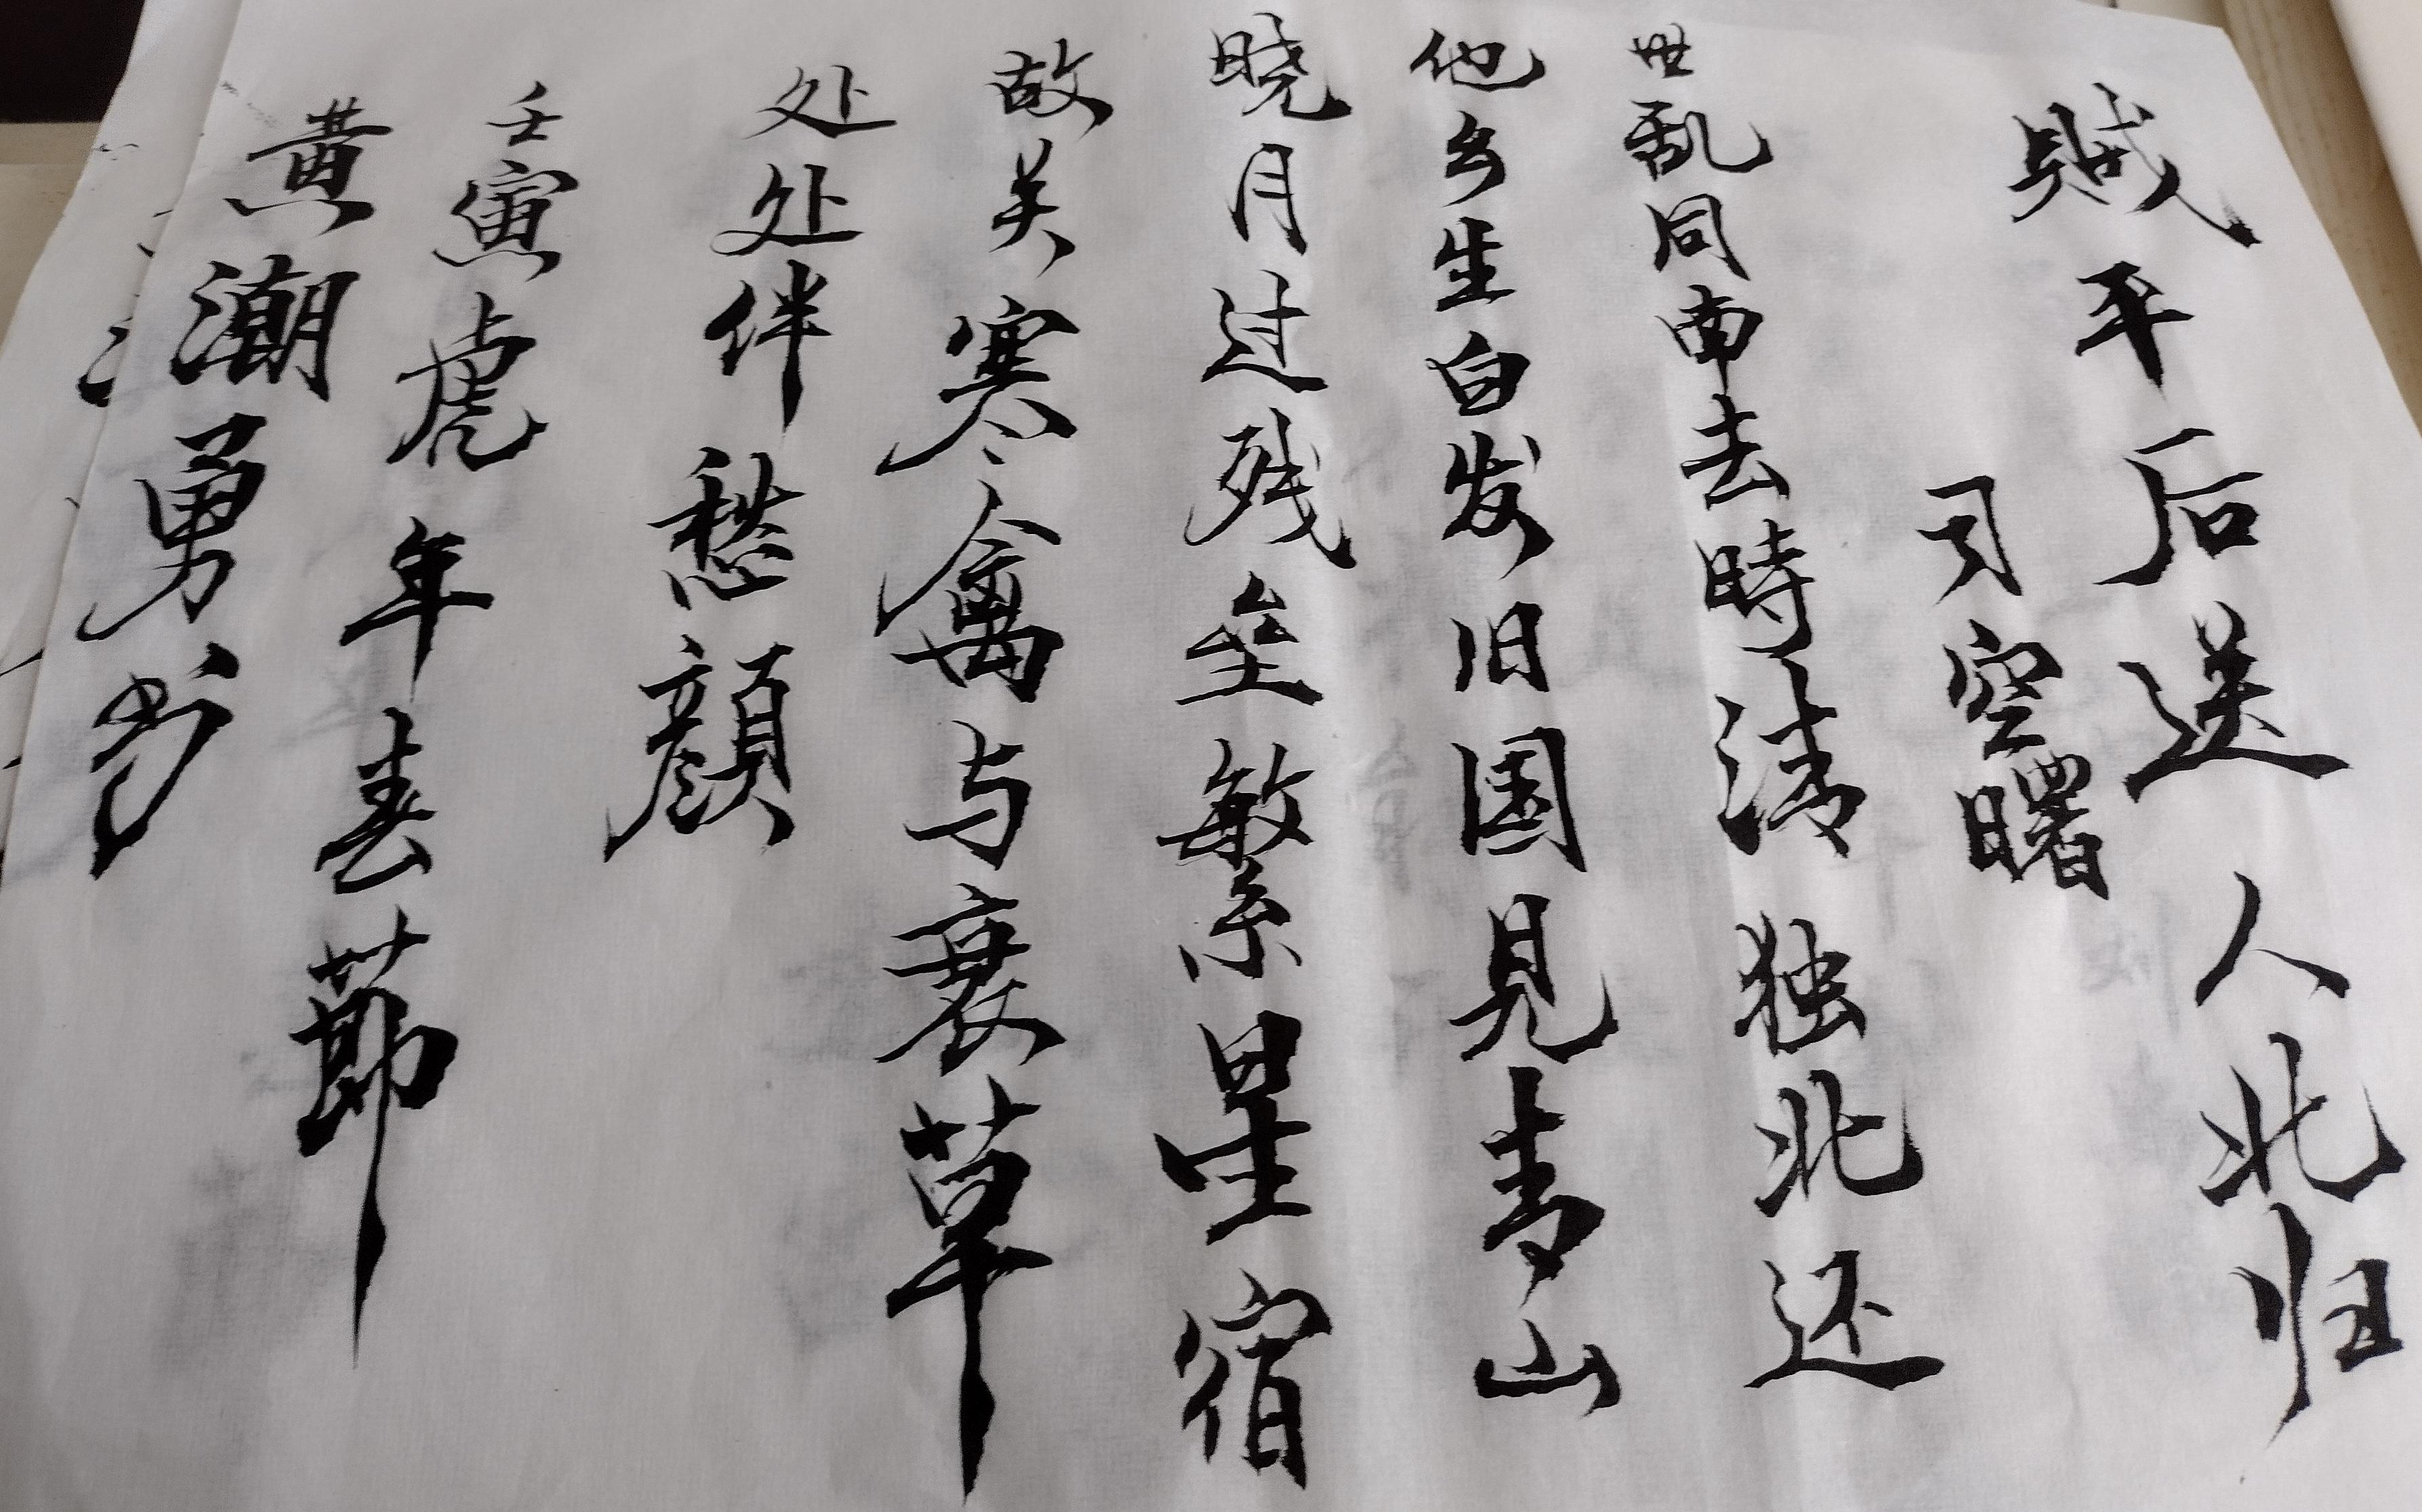 贼平后送人北归
司空曙
世乱同南去時清独北还
他乡生白发旧国見青山
晓月过残垒繁星宿
故关寒禽与衰草
处处伴愁颜
壬寅虎年春节
黄潮勇书